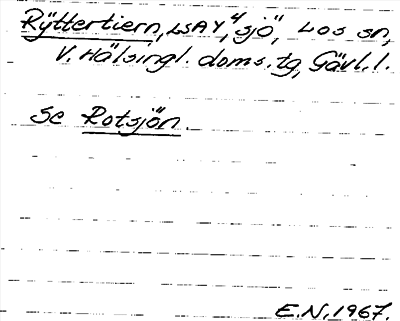 Rÿttertiern, LSAY, "sjö", Los sn,
V. Hälsingl. doms.tg, Gävl.l.
Se Rotsjön.
E.N. 1967.